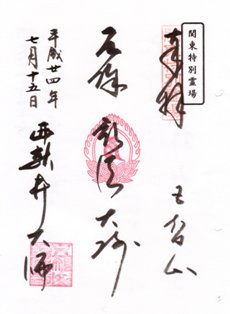 関東特別霊場
奉拝
五智山
厄除 弘法大師
平成廿四年
七月十五日
西新井大師